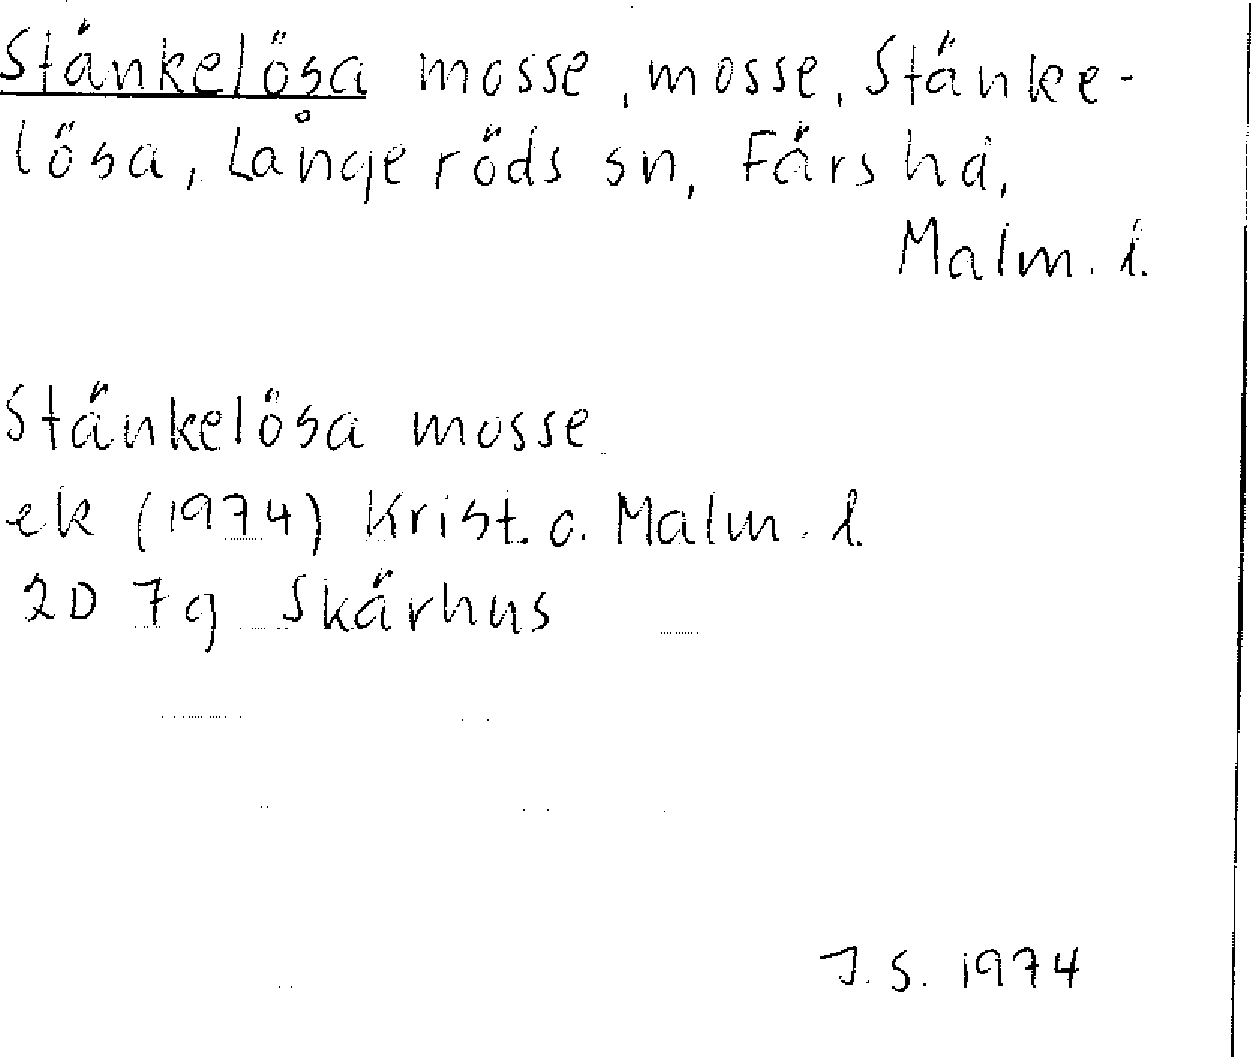 Stänkelösa mosse, mosse, Stänke-
lösa, Långeröds sn, Färs hd,
Malm. l.
Stänkelösa mosse
ek (1974) Krist. o. Malm. l.
2D 7g Skärhus
J.S. 1974